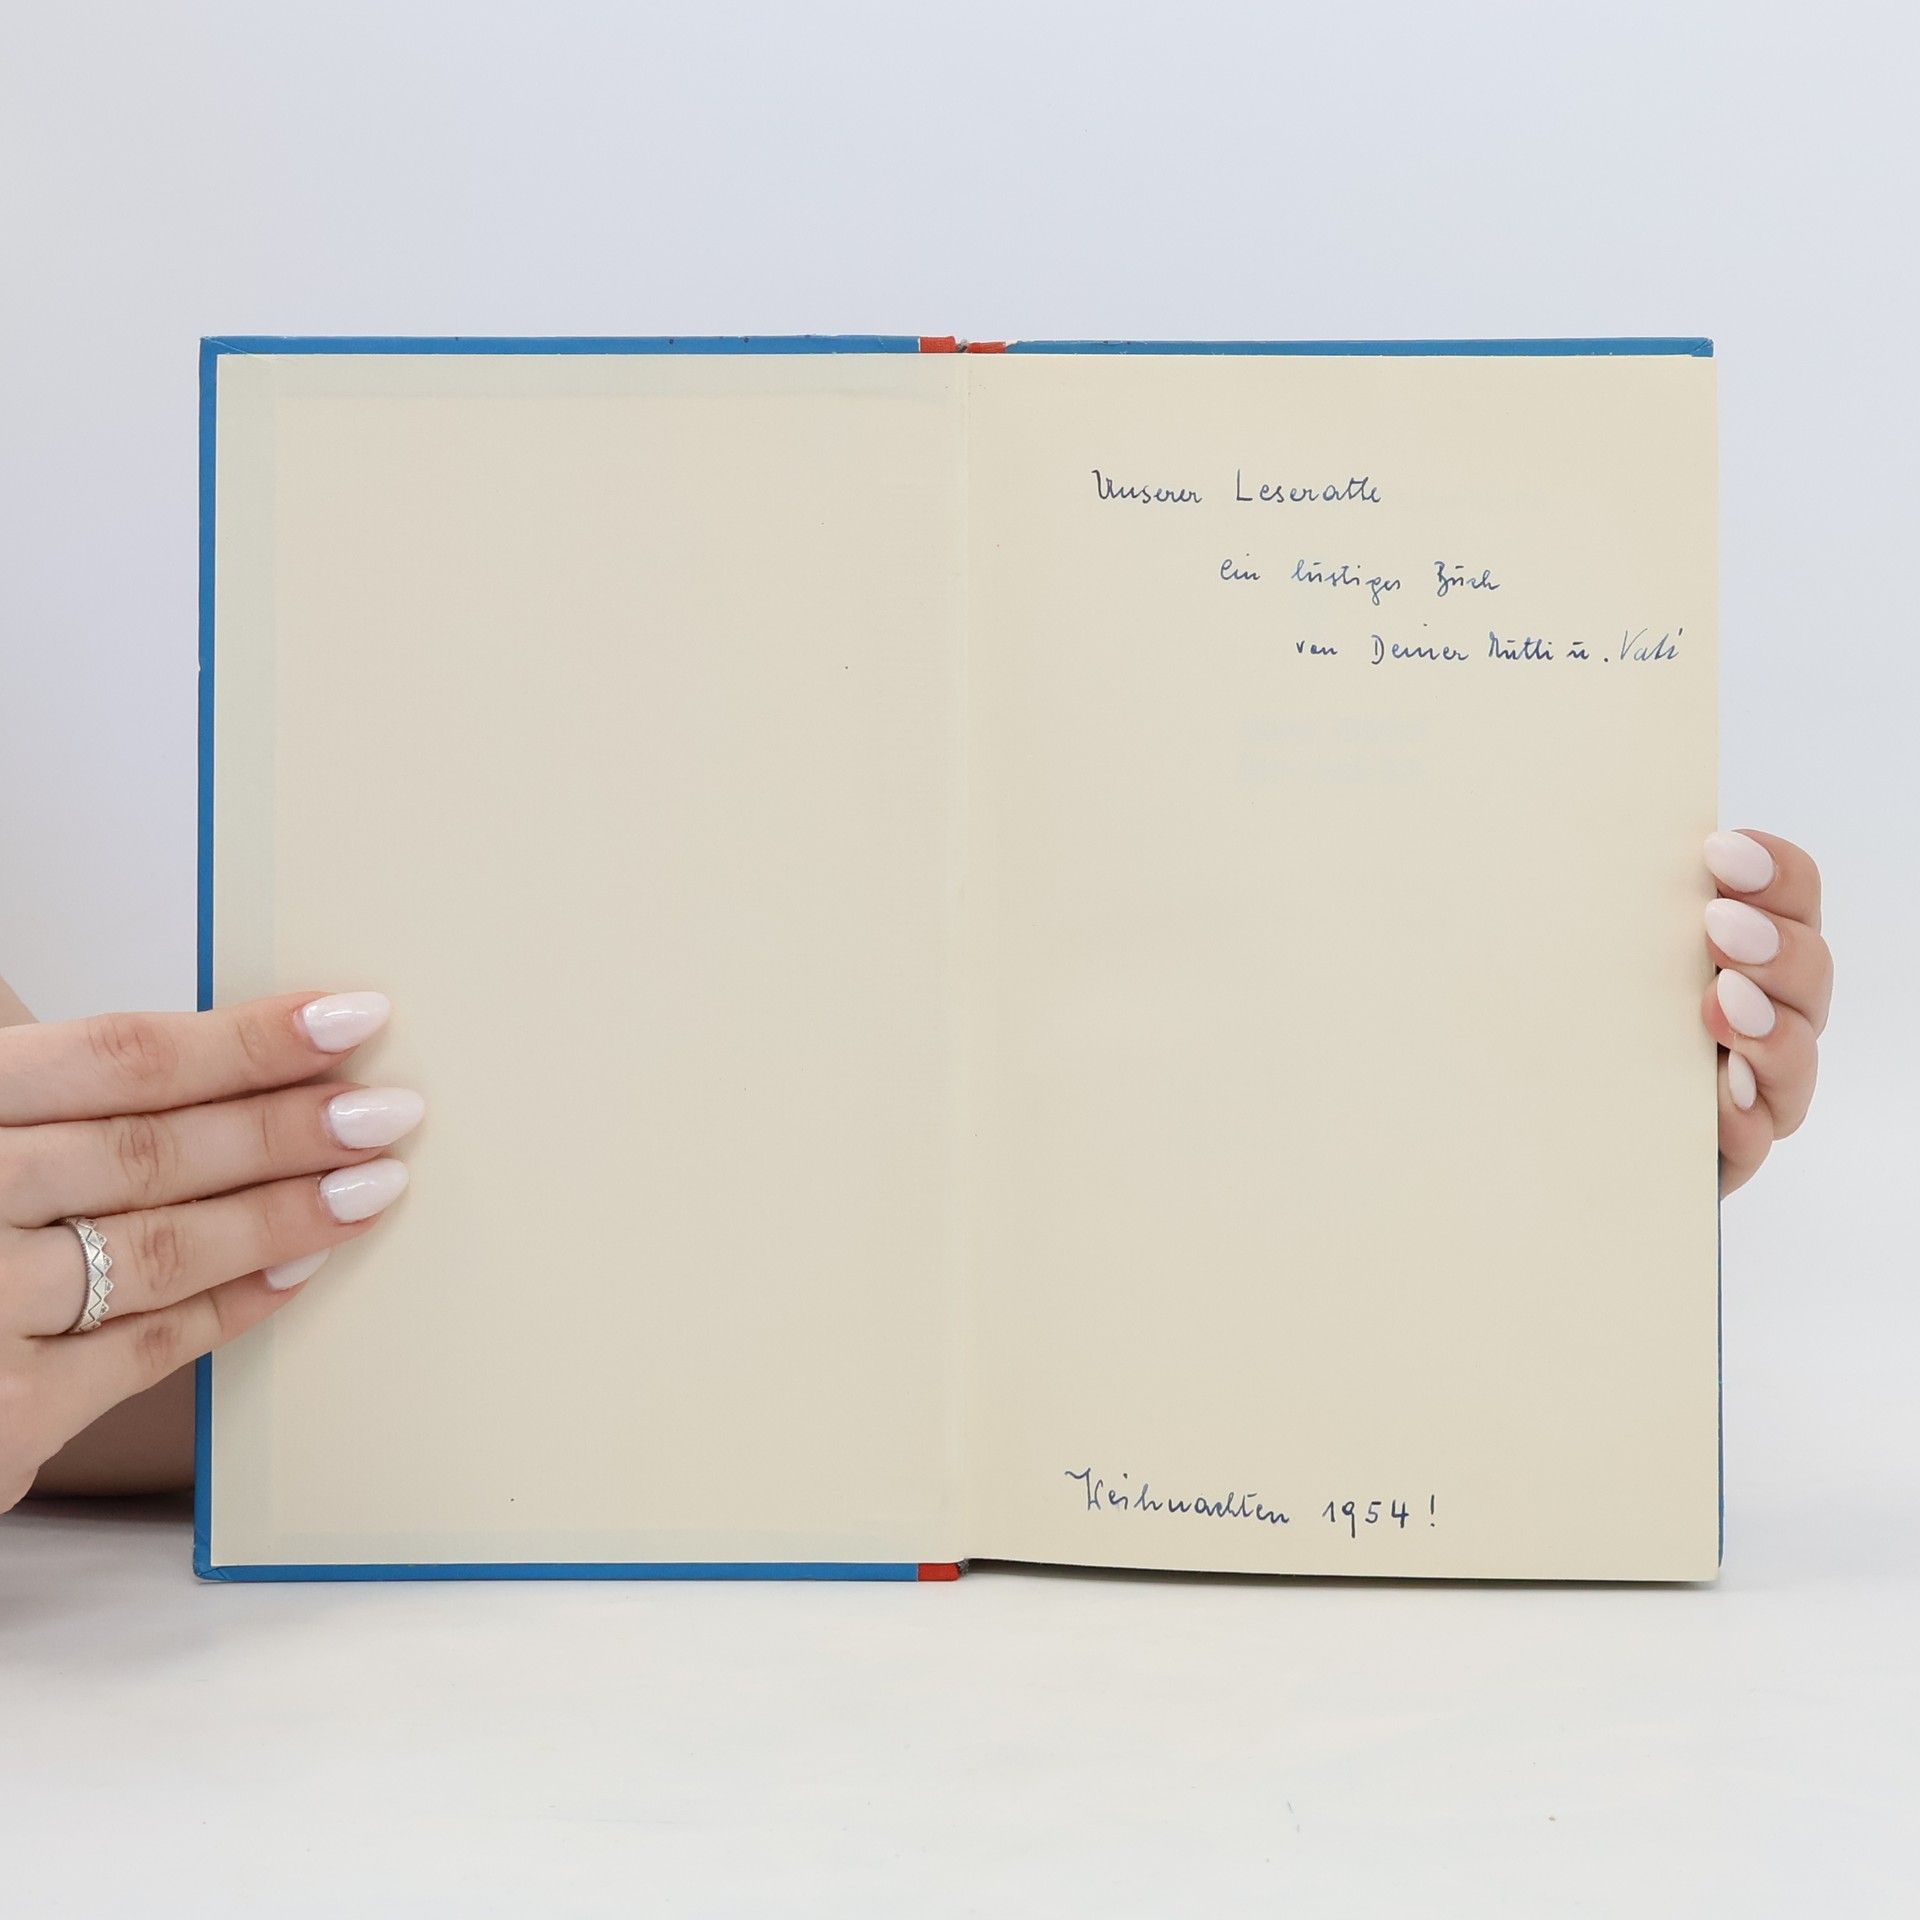 Unserer Leseratte
ein lustiges Buch
von Deiner Mutti u. Vati
Weihnachten 1954!